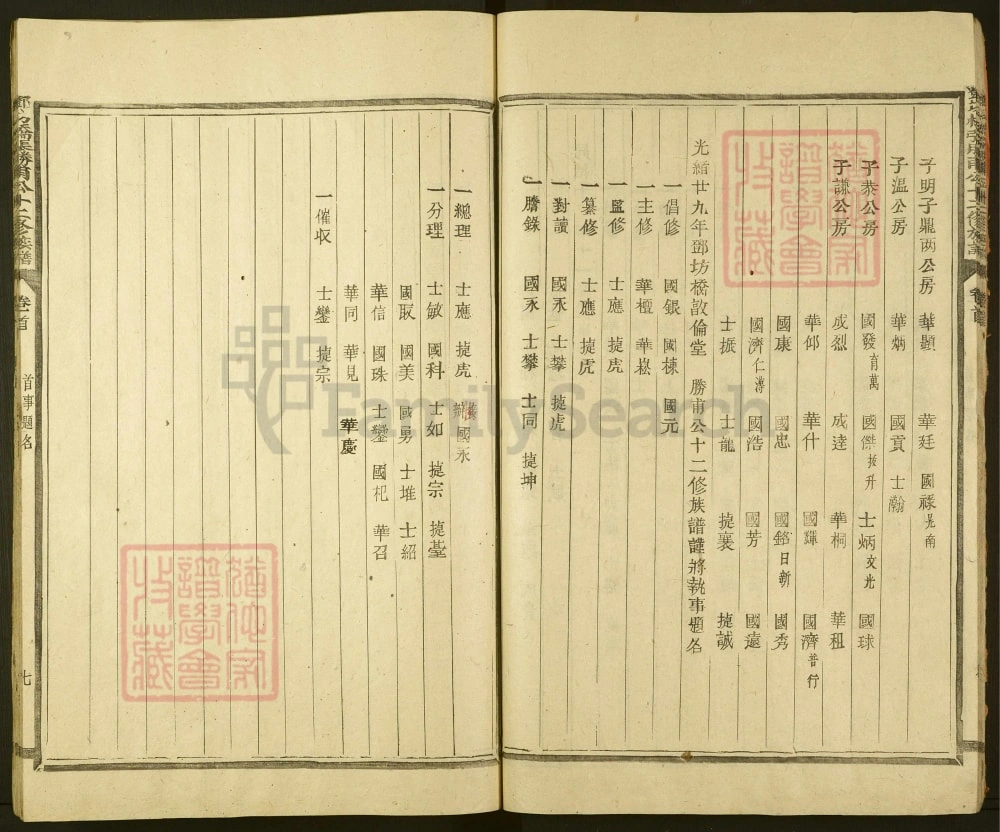 子明子鼎兩公房 華顯 華廷 國祿光南
子溫公房 華炳 國貢 士瀚
子恭公房 國發育萬 國傑拔升 士炳文光 國球
子謙公房 成烈 成達 華桐 華租
華仰 華什 國輝 國濟普行
國康 國忠 國銘日新 國秀
國濟仁溥 國浩 國芳 國遠
士振 士龍 捷襄 捷誠
光緒廿九年鄧坊橋敦倫堂 勝甫公十二修族譜謹將執事題名
一倡修 國銀 國棟 國元
一主修 華檀 華崧
一監修 士應 捷虎
一纂修 士應 捷虎
一對讀 國永 士攀 捷虎
一謄錄 國永 士攀 士同 捷坤
一總理 士應 捷虎 國永
一分理 士敏 國科 士如 捷宗 捷臺
國取 國美 國勇 士堆 士紹
華信 國珠 士鑾 國杞 華召
華同 華見 華慶
一催收 士鑾 捷宗
勝甫公十二修族譜
卷首
首事題名
七
FamilySearch
譜學會
收藏